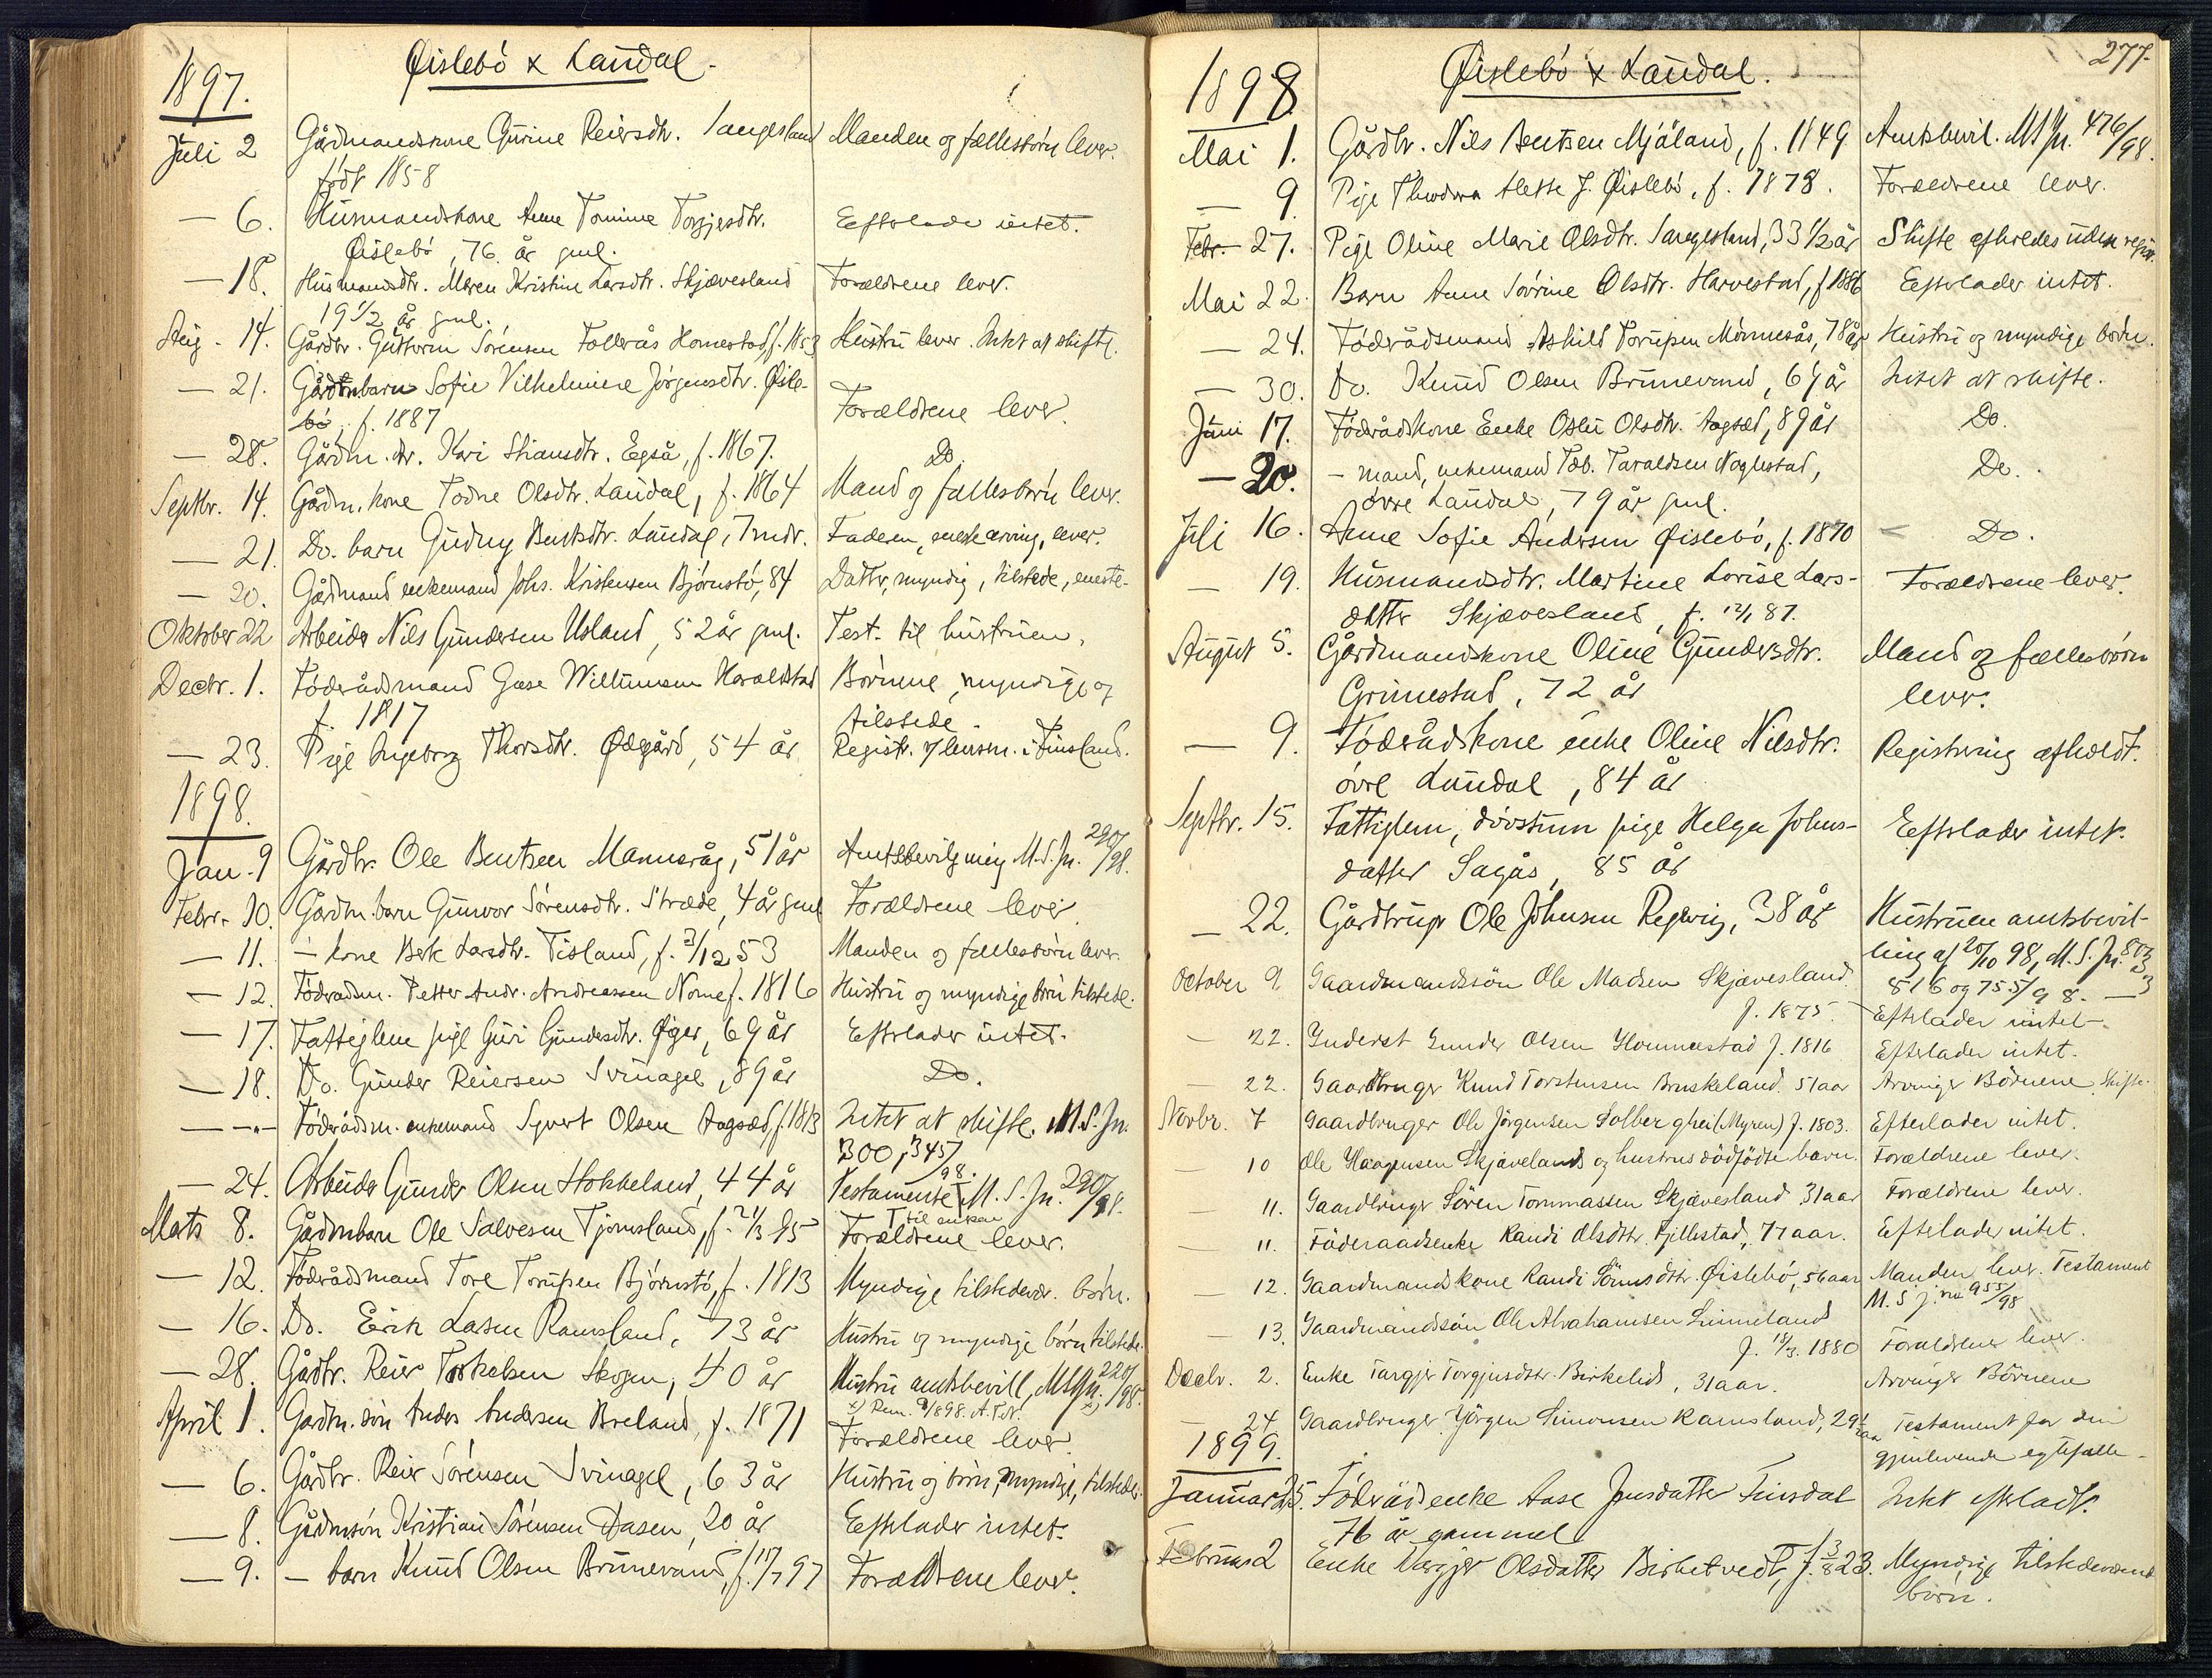 Øislebö & Laudal.
1897.
Juli 2 Gårdmandskone Gurine Reiersdtr. Langesland Manden og fællesbörn lever.
född 1858
— 6. Husmandskone Anne Tomine Torgjesdtr. Efterlader intet.
Øislebö, 76 år gml.
— 18. Husmandsdtr. Maren Kristine Larsdtr. Skjævesland Forældrene lever.
19 1/2 år gml.
Aug. 14. Gårdbr. Guttorm Sörensen Follerås Homestad, f. 1853 Hustru lever. Intet at skifte.
— 21. Gårdmbarn Sofie Vilhelmine Jörgensdtr. Øisle-
bö, f. 1887 Forældrene lever.
— 28. Gårdm. dr. Kari Stiansdtr. Egså, f. 1867. Do.
Septbr. 14. Gårdm. kone Todne Olsdtr. Laudal, f. 1864 Mand og fællesbörn lever.
— 21. Do. barn Gudny Bentsdtr. Laudal, 7 mdr. Faderen, eneste arving, lever.
— 20. Gårdmand enkemand Johs. Kristensen Bjørnstö, 84 Datter, myndig, tilstede, eneste-
Oktober 22 Arbeider Nils Gundersen Usland, 52 år gml. Test. til hustruen.
Decbr. 1. Föderådsmand Gase Willumsen Haraldstad Börnene, myndige og
f. 1817 tilstede.
— 23. Pige Ingeborg Thorsdtr. Ødegård, 54 år Registr. v/ lensm. i Finsland.
1898.
Jan. 9 Gårdbr. Ole Bentsen Mannsråg, 51 år Amtsbevilgning M.S.Jn. 290/98.
Febr. 10. Gårdm. barn Gunvor Sörensdtr. Stræde, 4 år gml Forældrene lever.
— 11. — kone Berte Larsdtr. Tisland, f. 3/12 53 Manden og fællesbörn lever.
— 12. Föderadsm. Petter Andr. Andreassen Nome f. 1816 Hustru og myndige börn tilstede.
— 17. Fattiglem pige Guri Gundersdtr. Øiger, 69 år Efterlader intet.
— 18. Do. Gunder Reiersen Svinagel, 89 år Do.
— „ — Föderådsm. enkemand Syvert Olsen Aagsæd, f. 1813 Intet at skifte. M.S.Jn.
300, 345/98.
— 24. Arbeider Gunder Olsen Stokkeland, 44 år Testamente M.S.Jn. 290/98.
til enken
Mats 8. Gårdmbarn Ole Salvesen Tjomsland, f. 21/3 95 Forældrene lever.
— 12. Föderådsmand Tore Torupsen Bjørnstö, f. 1813 Myndige tilstedevær. börn.
— 16. Do. Erik Lasen Ramsland, 73 år Hustru og myndige börn tilstede.
— 28. Gårdbr. Reier Torkelsen Skogen, 40 år Hustru amtsbevill, MSJn. 220/98.
x) Rem. 9/8 98. A.T.N.
April 1. Gårdm. sön Anders Andersen Breland, f. 1871 Forældrene lever.
— 6. Gårdbr. Reier Sörensen Svinagel, 63 år Hustru og börn, myndige, tilstede.
— 8. Gårdmsön Kristian Sörensen Aasen, 20 år Efterlader intet.
— 9. — barn Knud Olsen Brunevand, f. 17/7 97 Forældrene lever.
277.
Øislebö & Laudal.
1898
Mai 1. Gårdbr. Nils Bentsen Mjåland, f. 1849 Amtsbevil. MSJn. 476/98.
— 9. Pige Theodora Alette J. Øislebö, f. 1878. Forældrene lever.
Febr. 27. Pige Oline Marie Olsdtr. Langesland, 33 1/2 år Skifte afholdes uden regist.
Mai 22. Barn Anne Sörine Olsdtr. Harvestad, f 1886 Efterlader intet.
— 24. Föderådsmand Askild Torupsen Monnesås, 78 år Hustru og myndige börn.
— 30. Do. Knud Olsen Brunevand, 69 år Intet at skifte.
Juni 17. Föderådskone Enke Oslu Olsdtr. Aagsæd, 89 år Do.
— 20. — mand, enkemand Tob. Taraldsen Noglestad, Do.
övre Laudal, 79 år gml.
Juli 16. Anne Sofie Andersen Øislebö, f. 1870 Do.
— 19. Husmandsdtr. Martine Lovise Lars- Forældrene lever.
datter Skjævesland, f. 12/1 87.
August 5. Gårdmandskone Oline Gundersdtr. Mand og fællesbörn
Grimestad, 72 år lever.
— 9. Föderådskone enke Oline Nilsdtr. Registrering afholdt.
övre Laudal, 84 år
Septbr. 15. Fattiglem, dövstum pige Helga Johns- Efterlader intet.
datter Sagås, 85 år
— 22. Gårdbruger Ole Johnsen Regevig, 38 år Hustruen amtsbevil-
ling af 20/10 98, M.S.Jn. 803
816 og 755/98.
October 9. Gaardmandssön Ole Madsen Skjævesland.
f. 1875. Efterlader intet.
— 22. Inderst Gunder Olsen Hommestad f. 1816 Efterlader intet.
— 22. Gaardbruger Knud Torstensen Bruskeland. 51 aar Arvinger Börnene Skifte.
Novbr. 7 Gaardbruger Ole Jörgensen Solberghei (Myren) f. 1803. Efterlader intet.
— 10 Ole Haagensen Skjævelands og hustrus dödfödte barn. Forældrene lever.
— 11. Gaardbruger Sören Tommassen Skjævesland 31 aar Forældrene lever.
— 11. Föderaadsenke Randi Olsdtr. Fjellestad, 77 aar. Efterlader intet.
— 12. Gaardmandskone Randi Sörensdtr. Øislebö, 56 aar Manden lever. Testament
M.S.J. no 955/98
— 13. Gaardmandssön Ole Abrahamsen Linneland
f. 18/3. 1880 Forældrene lever.
Decbr. 2. Enke Targjer Torgjusdtr. Birkelid, 31 aar. Arvinger Börnene
— 24 Gaardbruger Jörgen Simonsen Ramsland, 29 1/2 aar Testament for den
gjenlevende egtefælle.
1899.
Januar 25. Föderådsenke Aase Jensdatter Finsdal Intet efterladt.
76 år gammel
Februar 2 Enke Margjer Olsdatter Birketvedt, f. 3/8 23. Myndige tilstedeværend
börn.